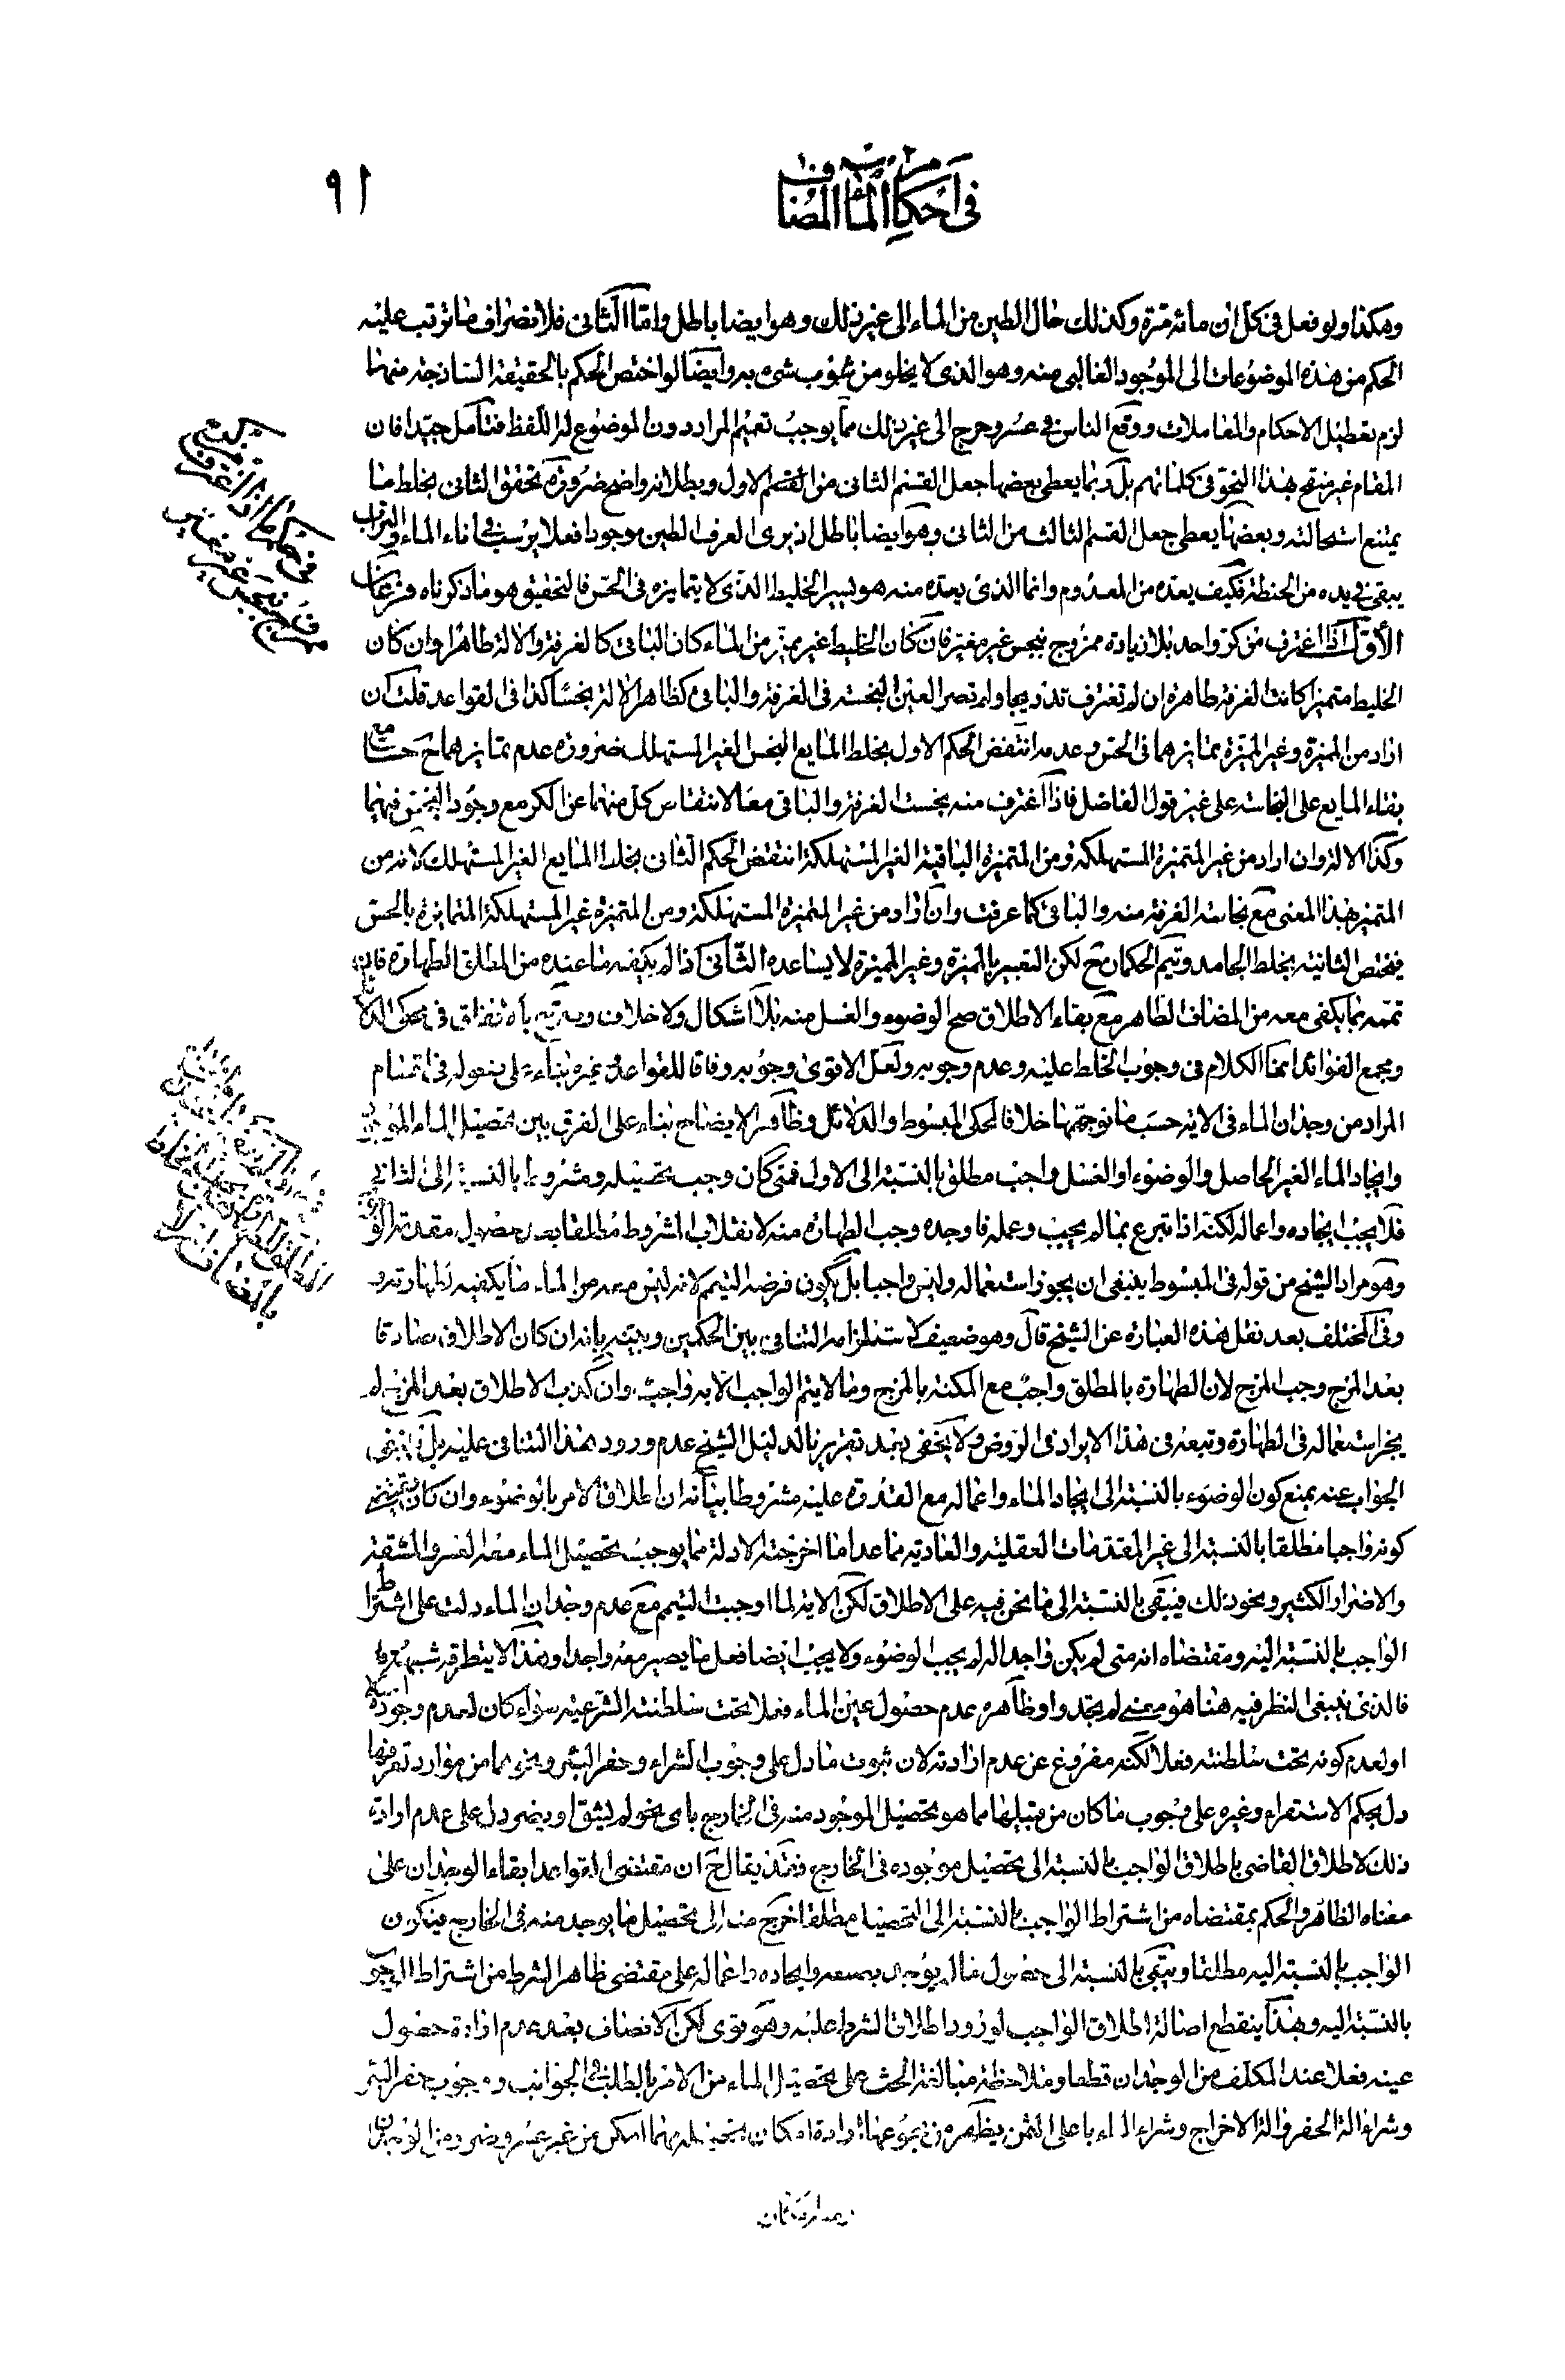 في أحكام الماء المضاف
٩١
وهكذا ولو فعل في كل ان مائة مرة وكذلك حال الطين من الماء الى غير ذلك وهو ايضا باطل واما الثاني فلانصراف ما ترتب عليه
الحكم من هذه الموضوعات الى الموجود الغالبي منه وهو الذي لا يخلو من شوب شيء به وايضا لو اختص الحكم بالحقيقة الساذجة منها
لزم تعطيل الاحكام والمعاملات ووقع الناس في عسر وحرج الى غير ذلك مما يوجب تعميم المراد دون الموضوع له اللفظ فتأمل جيدا فان
المقام غير منقح بهذا النحو في كلماتهم بل ربما يعطي بعضها جعل القسم الثاني من القسم الاول وبطلانه واضح ضرورة تحقق الثاني بخلط ما
يمتنع استحالته وبعضها يعطي جعل القسم الثالث من الثاني وهو ايضا باطل اذ يرى العرف الطين موجودا فعلا يرسب في اناء الماء والتراب
يبقى في يده من الحنطة فكيف يعده من المعدوم وانما الذي يعده منه هو يسير الخليط الذي لا يتمايزه في الحس فالتحقيق هو ما ذكرناه وفرعان
الأول اذا اغترف من كر واحد بلا زيادة ممزوج بنجس غير مغير فان كان الخليط غير مميز من الماء كان الباقي كالغرفة والالة طاهرا وان كان
الخليط متميزا كانت الغرفة طاهرة ان لم تغترف تدريجا ولم تصر العين النجسة في الغرفة والباقي كظاهر الالة نجسا كذا في القواعد قلت ان
اراد من المميزة وغير المميزة تمايزهما في الحس وعدمه انتقض الحكم الاول بخلط المايع النجس الغير المستهلك ضرورة عدم تمايزهما ح حسا مع
بقاء المايع على النجاسة على غير قول الفاضل فاذا اغترف منه نجست الغرفة والباقي معا لانتقاص كل منهما عن الكر مع وجود النجس فيهما
وكذا الالة وان اراد من غير المتميزة المستهلكة ومن المتميزة الباقية الغير المستهلكة انتقض الحكم الثاني بخلط المايع الغير المستهلك لانه من
المتميز بهذا المعنى مع نجاسة الغرفة منه والباقي كما عرفت وان اراد من غير المتميزة المستهلكة ومن المتميزة غير المستهلكة المتمايزة بالحس
فيختص الثانية بخلط الجامد ويتم الحكمان ح لكن التعبير بالمميزة وغير المميزة لا يساعده الثاني اذا لم يكفه ما عنده من المطلق للطهارة فان
تممه بما يكفي معه من المضاف الطاهر مع بقاء الاطلاق صح الوضوء والغسل منه بلا اشكال ولا خلاف وصرح بالاتفاق في محكي الدلائل
ومجمع الفوائد انما الكلام في وجوب الخلط عليه وعدم وجوبه ولعل الاقوى وجوبه وفاقا للقواعد وغيره بناء على دخوله في اقسام
المراد من وجدان الماء في الاية حسب ما توجيهها خلافا لمحكي المبسوط والدلائل وظاهر الايضاح بناء على الفرق بين تحصيل الماء الموجود
وايجاد الماء الغير الحاصل والوضوء او الغسل واجب مطلق بالنسبة الى الاول فمتى كان وجب تحصيله ومشروط بالنسبة الى الثاني
فلا يجب ايجاده واعماله لكنه اذا تبرع بما لم يجب وعمله فاوجده وجب الطهارة منه لانقلاب المشروط مطلقا بعد حصول مقدمته
وهو مراد الشيخ من قوله في المبسوط ينبغي ان يجوز استعماله وليس واجبا بل يكون فرضه التيمم لانه ليس معه من الماء ما يكفيه لطهارته
وفي المختلف بعد نقل هذه العبارة عن الشيخ قال وهو ضعيف لاستلزامه التنافي بين الحكمين وبينه بانه ان كان الاطلاق صادقا
بعد المزج وجب المزج لان الطهارة بالمطلق واجب مع المكنة بالمزج وما لا يتم الواجب الا به واجب وان كذب الاطلاق بعد المزج لم
يجز استعماله في الطهارة وتبعه في هذا الايراد في الروض ولا يخفى بعد تقريرنا لدليل الشيخ عدم ورود هذا التنافي عليه بل ينبغي
الجواب عنه بمنع كون الوضوء بالنسبة الى ايجاد الماء واعماله مع القدرة عليه مشروطا ببيانه ان اطلاق الامر بالوضوء وان كان يقتضي
كونه واجبا مطلقا بالنسبة الى غير المقدمات العقلية والعادية مما عدا ما اخرجته الادلة مما يوجب تحصيل الماء معه العسر والمشقة
والاضرار الكثير ونحو ذلك فيبقى بالنسبة الى ما نحن فيه على الاطلاق لكن الاية لما اوجبت التيمم مع عدم وجدان الماء دلت على اشتراط
الواجب بالنسبة اليه ومقتضاه انه متى لم يكن واجدا له لم يجب الوضوء ولا يجب ايضا فعل ما يصير معه واجدا وهذا لا يتطرقه شبهة
فالذي ينبغي النظر فيه هنا هو معنى لم تجدوا وظاهره عدم حصول عين الماء فعلا تحت سلطنته الشرعية سواء كان لعدم وجوده
او لعدم كونه تحت سلطنته فعلا لكنه مفروغ عن عدم ارادته لان ثبوت ما دل على وجوب الشراء وحفر البئر ونحوهما من موارد
دل بحكم الاستقراء وغيره على وجوب ما كان من قبيلها مما هو تحصيل الموجود منه في الخارج باي نحو لم يشق او يضر ودل على عدم ارادة
ذلك لاطلاق القاضي باطلاق الواجب بالنسبة الى تحصيل موجوده في الخارج فقد يقال ح ان مقتضى القواعد ابقاء الوجدان على
معناه الظاهر والحكم بمقتضاه من اشتراط الواجب بالنسبة الى التحصيل مطلقا خرج منه الى تحصيل ما يوجد منه في الخارج فيكون
الواجب بالنسبة اليه مطلقا ويبقى بالنسبة الى حصول ما لم يوجد بصنعه وايجاده واعماله على مقتضى ظاهر الشرط من اشتراط الوجوب
بالنسبة اليه وبهذا ينقطع اصالة اطلاق الواجب لورود اطلاق الشرط عليه وهو قوي لكن الانصاف بعد عدم ارادة حصول
عينه فعلا عند المكلف من الوجدان قطعا وملاحظة مبالغة الحث على تحصيل الماء من الامر بالطلب في الجوانب ووجوب حفر البئر
وشراء الة الحفر والة الاخراج وشراء الماء باعلى الثمن يظهر من مجموعها ارادة امكان تحصيله مهما امكن من غير عسر وضرر من الوجدان